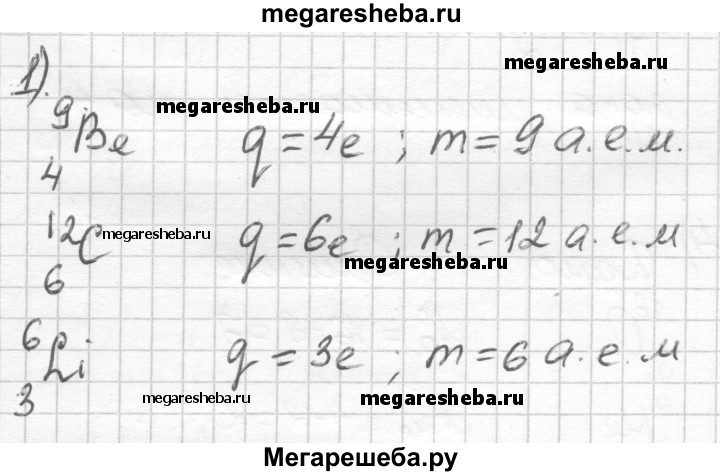 megaresheba.ru
megaresheba.ru
1).
megaresheba.ru
⁹₄Be q = 4e ; m = 9 а.е.м.
¹²₆C q = 6e ; m = 12 а.е.м
megaresheba.ru
megaresheba.ru
⁶₃Li q = 3e ; m = 6 а.е.м
megaresheba.ru
megaresheba.ru
Мегарешеба.ру